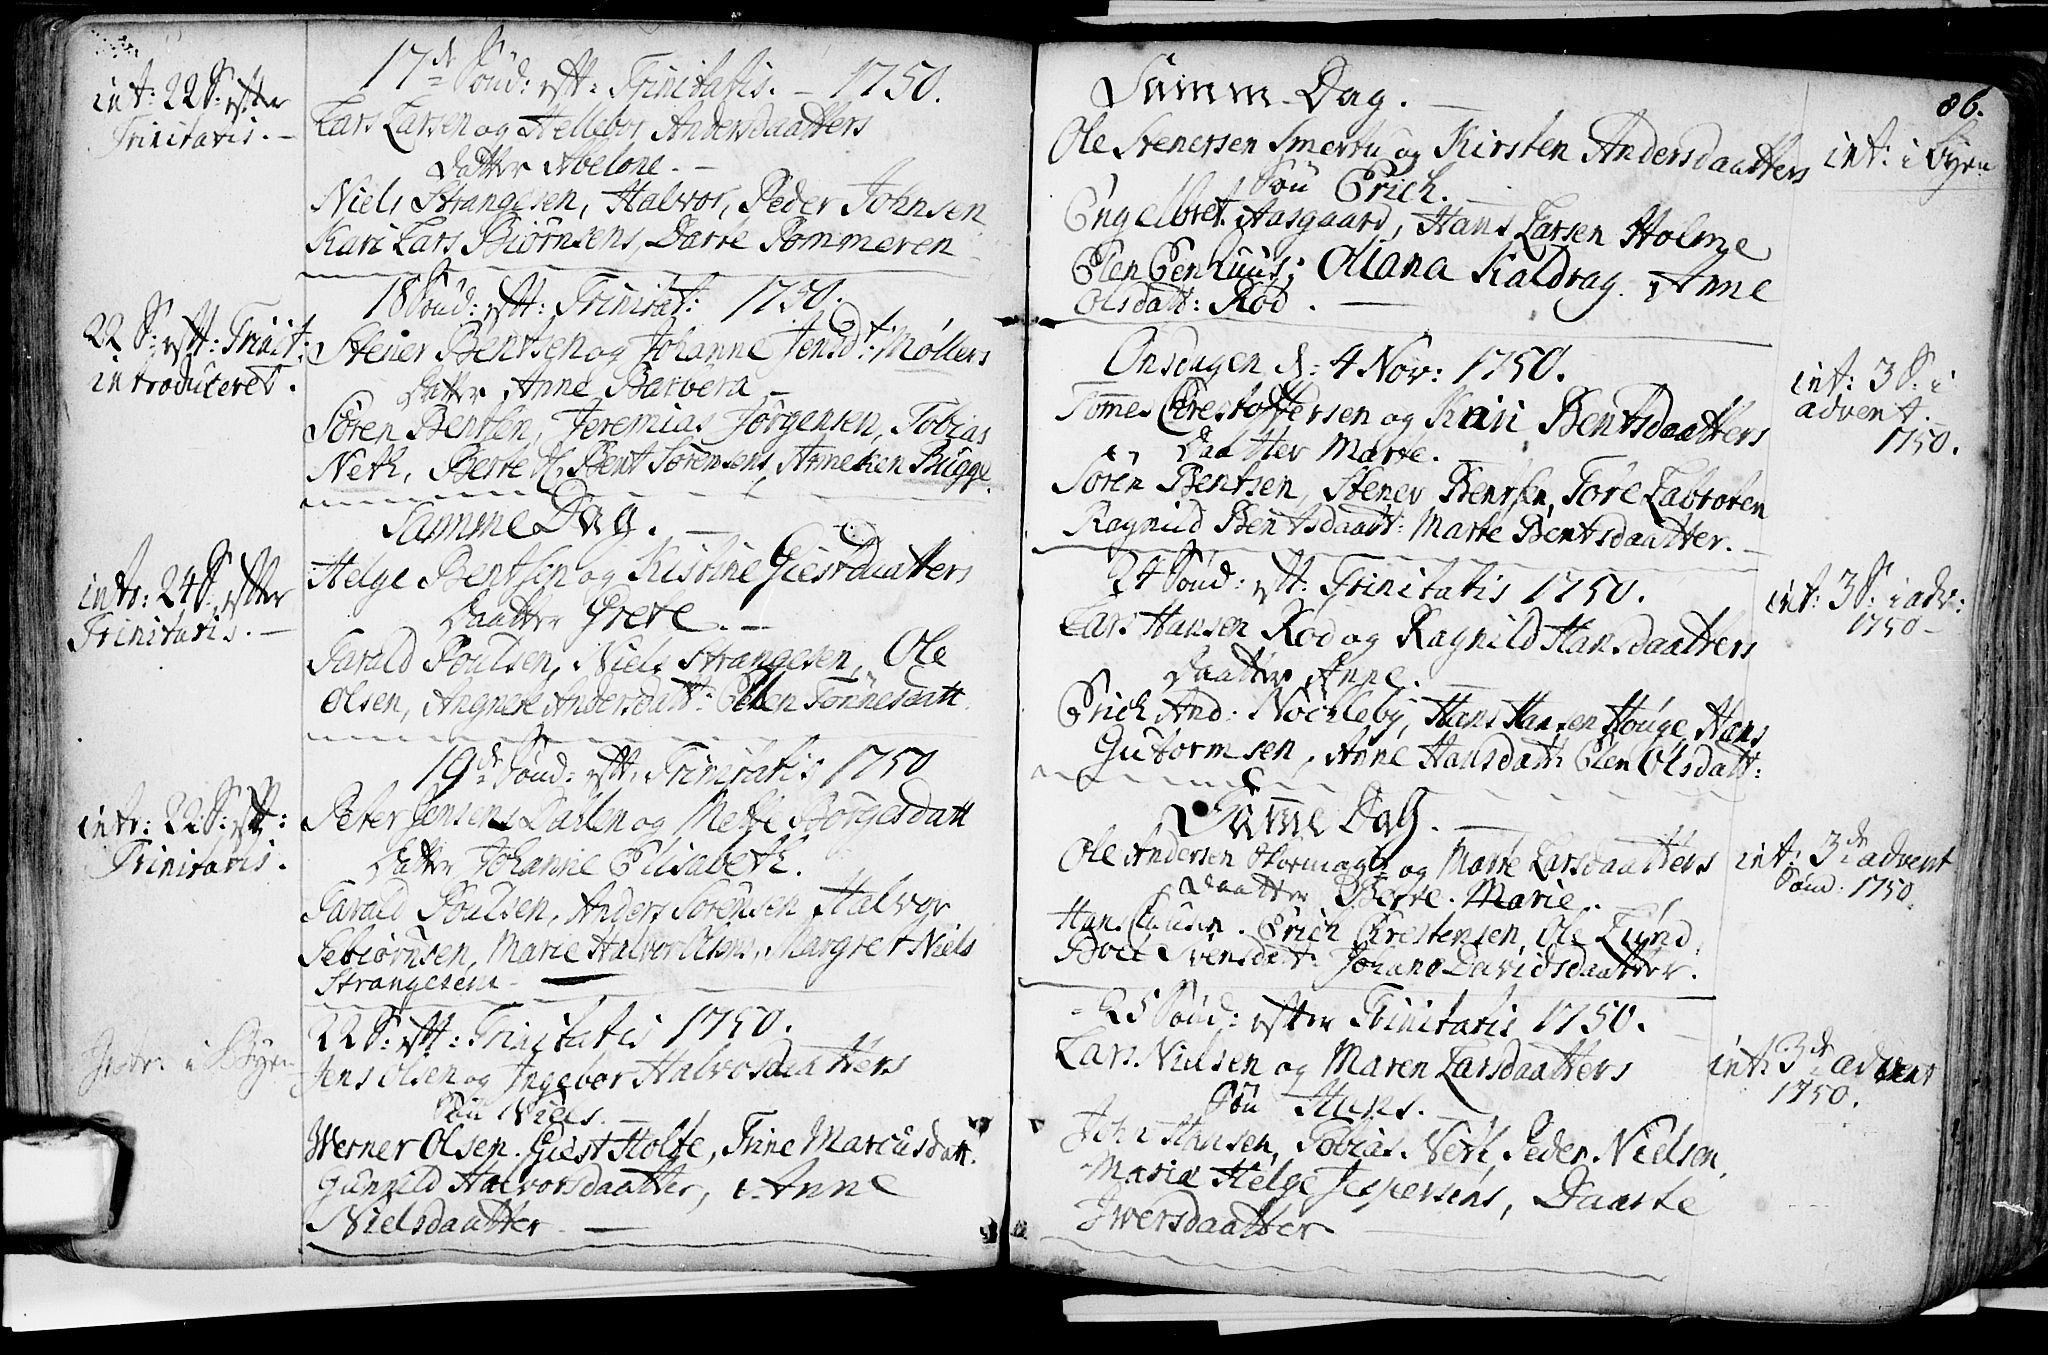 int: 22 S: efter
Trinitatis. –
17de Sönd: eft: Trinitatis. – 1750.
Lars Larsen og Hellebor Andersdaatters
Datter Abelone. –
Niels Strangesen, Halvor, Peder Johnsen
Kari Lars Biörnsens, Dorte Pommeren
22 S: eft: Trinit:
introduceret.
18 Sönd: eft: Trinitat: 1750.
Stener Bentsen og Johanne Jensdt: Möllers
Datter Anne Barbera –
Sören Bentsen, Jeremias Jörgensen, Tobias
Neth, Berte Bent Sörensens, Anneken Bugge
intr: 24 S. efter
Trinitatis. –
Samme Dag. –
Helge Bentsen og Kistine Giestdaatters
Daatter Grete. –
Tarald Poulsen, Niels Strangesen, Ole
Olsen, Angnete Andersdatt: Ellen Tönnesdatt
intr: 22: S: eft:
Trinitatis.
19de Sönd: eft: Trinitatis 1750
Peter Jensens Dahlen og Mette Börgesdatt
Datter Johanne Elisabeth.
Tarald Poulsen, Anders Sörensen Halvor
Tebiörnsen, Marie Halvor Olsens, Margret Niels
Strangesens –
Intr. i Byen
22 S: eft: Trinitatis 1750.
Jens Olsen og Ingebor Halvorsdaatters
Sön Niels. –
Werner Olsen. Giest Holte, Trine Marcusdatt.
Gunnild Halvorsdaatter, Anne
Nielsdaatter –
86.
Samm-Dag. –
Ole Stenersen Smertu og Kirsten Andersdaatters
Sön Erich. –
int: i Byen
Engelbret Aasgaard, Hans Larsen Holme
Elen Genhuus; Oliana Kaldrag. Anne
Olsdatt: Röd. –
Onsdagen d: 4 Nov: 1750.
int: 3 S. i
advent.
1750.
Tomes Chrestoffersen og Kari Bentsdaatters
Daatter Marte. –
Sören Bentsen, Stener Bentsen, Tore Labroten
Ragnild Bentsdaatt: Marte Bentsdaatter. –
24 Sönd: eft: Trinitatis 1750.
int: 3 S: i adv:
1750 –
Lars Hansen Röd og Ragnild Hansdaatters
Daatter Anne. –
Erich And: Nöchleby, Hans Hansen Houge, Hans
Gutormsen, Anne Hansdatt: Elen Olsdatt:
Samme Dag. –
Ole Andersen og Marte Larsdaatters
Daatter Berte. Marie.
int: 3de advent
Sönd. 1750.
Hans Clausen. Erich Chrestensen, Ole Lund,
Boel Svensdatt: Johane Davidsdaatter.
25 Sönd: efter Trinitatis 1750. –
Lars Nielsen og Maren Larsdaatters
Sön Hans. –
int: 3de advent
1750.
John Hansen, Tobias Neth, Peder Nielsen,
Maria Helge Jespersens, Daarte
Iwersdaatter –